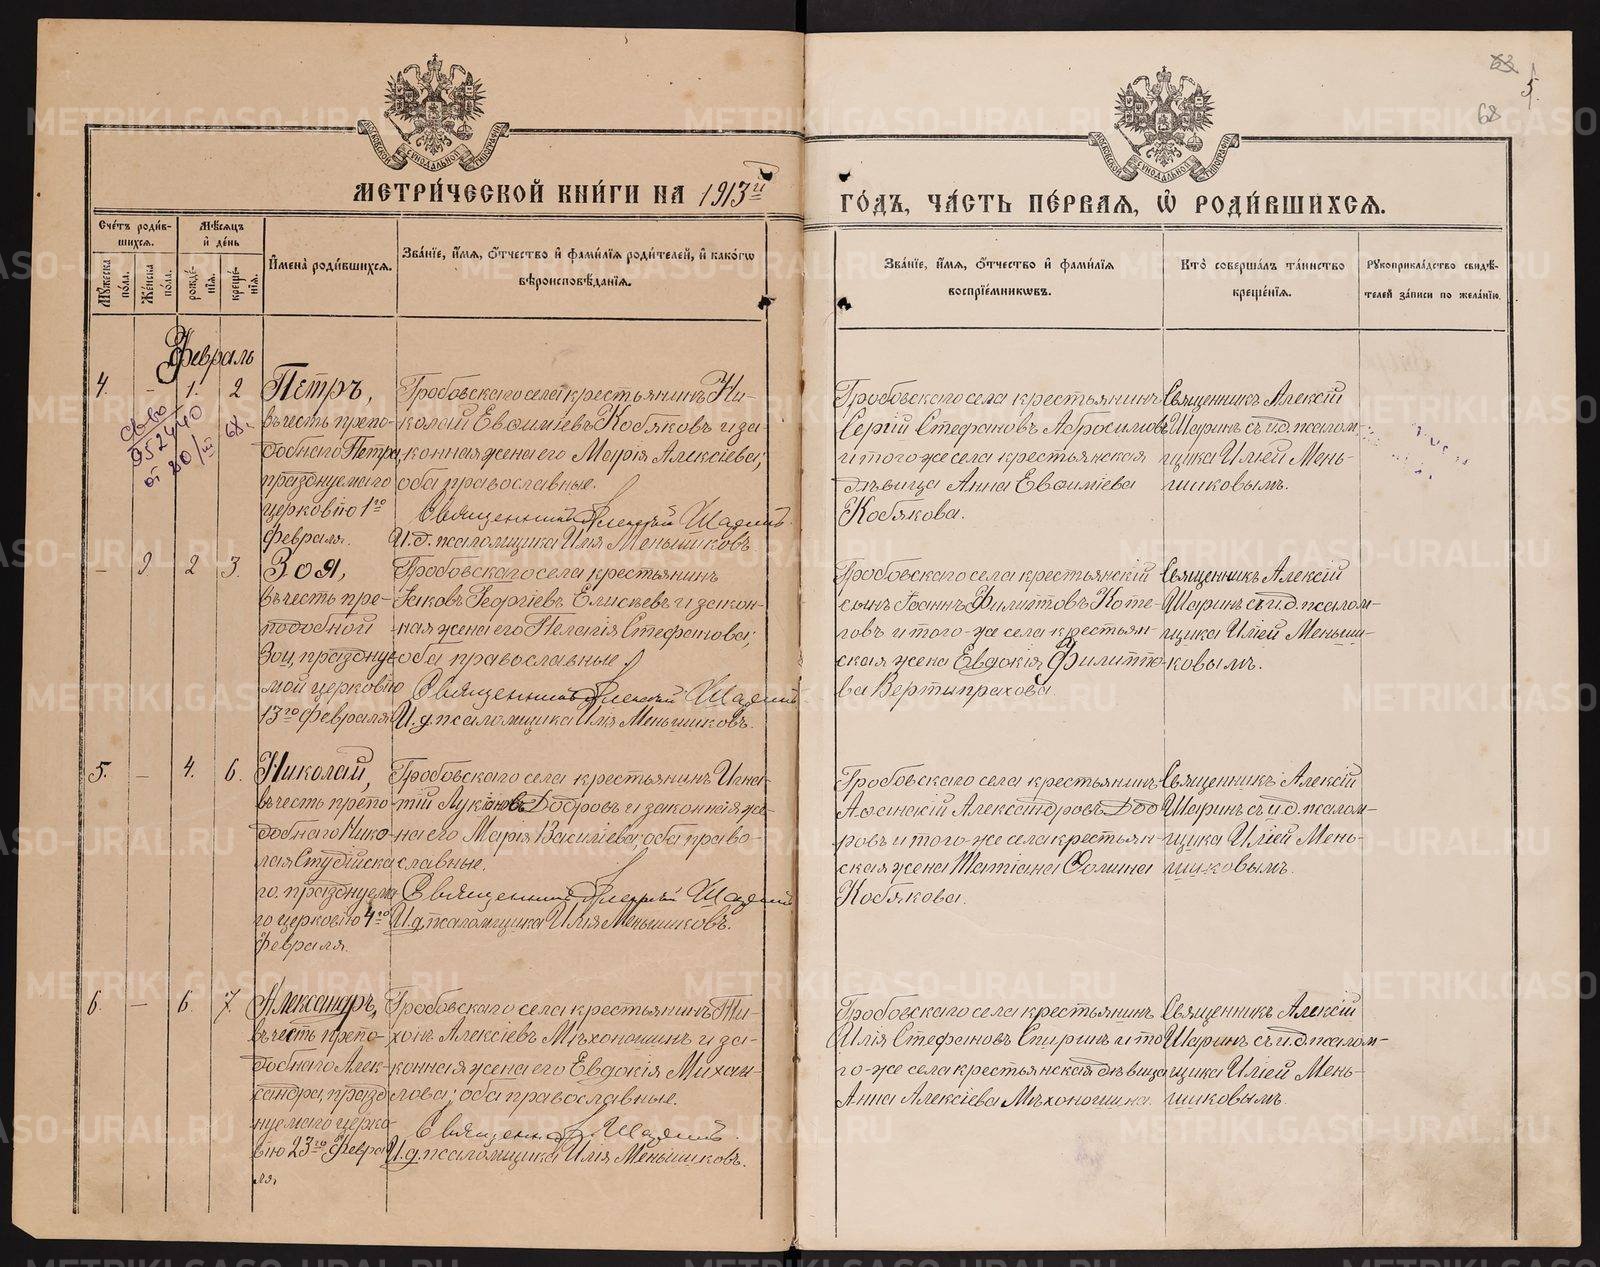 МЕТРИ́ЧЕСКОЙ КНИ́ГИ НА 1913й
ГО́ДЪ, ЧА́СТЬ ПЕ́РВАЯ, Ѡ РОДИ́ВШИХСЯ.
МОСКОВСКОЙ СѴНОДАЛЬНОЙ ТИПОГРАФІИ
МОСКОВСКОЙ СѴНОДАЛЬНОЙ ТИПОГРАФІИ
68
5
Сче́тъ роди́в-
шихся.
Му́жеска по́ла.
Же́нска по́ла.
Мѣ́сяцъ и де́нь
рожде́-
нія.
креще́-
нія.
Имена̀ роди́вшихся.
Зва́ніе, и́мя, о́тчество и фами́лія роди́телей, и како́гѡ
вѣроисповѣ́данія.
Зва́ніе, и́мя, о́тчество и фами́лія
воспріе́мникѡвъ.
Кто̀ соверша́лъ та́инство
креще́нія.
Рукоприкла́дство свидѣ́-
телей за́писи по жела́нію.
Февраль
4. - 1. 2
св-во
952440
от 20/III 68.
Петръ,
въ честь препо-
добнаго Петра,
празднуемаго
церковію 1го
февраля.
Гробовскаго села крестьянинъ Ни-
колай Евѳиміевъ Кобяковъ и за-
конная жена его Марія Алексіева;
оба православные.
Священникъ Алексій Шаринъ
И.д. псаломщика Илія Меньшиковъ.
Гробовскаго села крестьянинъ
Сергій Стефановъ Абросимовъ
и того же села крестьянская
дѣвица Анна Евѳиміева
Кобякова.
Священникъ Алексій
Шаринъ съ и.д. псалом-
щика Иліей Мень-
шиковымъ.
- 9 2 3.
Зоя,
въ честь пре-
подобной
Зои, празднуе-
мой церковію
13го февраля
Гробовскаго села крестьянинъ
Іаковъ Георгіевъ Елисѣевъ и закон-
ная жена его Пелагія Стефанова;
оба православные.
Священникъ Алексій Шаринъ
И.д. псаломщика Илія Меньшиковъ.
Гробовскаго села крестьянскій
сынъ Іоаннъ Филипповъ Коте-
говъ и того-же села крестьян-
ская жена Евдокія Филиппо-
ва Вертипрахова.
Священникъ Алексій
Шаринъ съ и.д. псалом-
щика Иліей Меньши-
ковымъ.
5. - 4. 6.
Николай,
въ честь препо-
добнаго Нико-
лая Студійска-
го, празднуема-
го церковію 4го
февраля.
Гробовскаго села крестьянинъ Игна-
тій Лукіановъ Добровъ и законная же-
на его Марія Василіева; оба право-
славные.
Священникъ Алексій Шаринъ
И.д. псаломщика Илія Меньшиковъ.
Гробовскаго села крестьянинъ
Аѳинскій Александровъ Доб-
ровъ и того-же села крестьян-
ская жена Татіана Ѳомина
Кобякова.
Священникъ Алексій
Шаринъ съ и.д. псалом-
щика Иліей Мень-
шиковымъ.
6. - 6. 7.
Александръ,
въ честь препо-
добнаго Алек-
сандра, празд-
нуемаго церко-
вію 23го февра-
ля.
Гробовскаго села крестьянинъ Ти-
хонъ Алексіевъ Мѣхоношинъ и за-
конная жена его Евдокія Михаи-
лова; оба православные.
Священникъ А. Шаринъ
И.д. псаломщика Илія Меньшиковъ.
Гробовскаго села крестьянинъ
Илія Стефановъ Спиринъ и то-
го-же села крестьянская дѣвица
Анна Алексіева Мѣхоношина.
Священникъ Алексій
Шаринъ съ и.д. псалом-
щика Иліей Мень-
шиковымъ.
METRIKI.GASO-URAL.RU